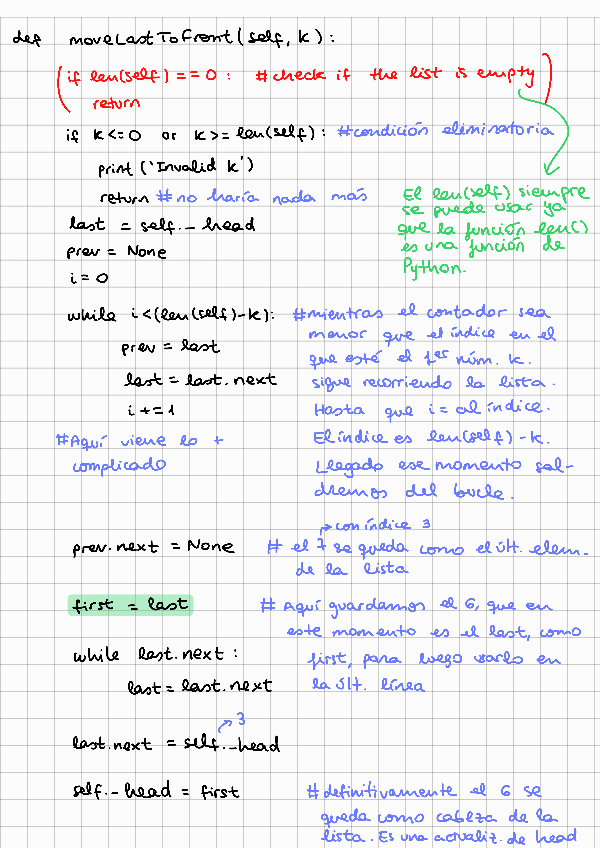 def moveLastToFront(self, k):
(if len(self) == 0: #check if the list is empty)
return
if k<=0 or k>=len(self): #condición eliminatoria
print ('Invalid k')
return #no haría nada más
El len(self) siempre
se puede usar ya
que la función len()
es una función de
Python.
last = self._head
prev = None
i=0
while i<(len(self)-k): #mientras el contador sea
menor que el índice en el
que esté el 1er núm. k.
sigue recorriendo la lista.
Hasta que i = al índice.
El índice es len(self)-k.
Llegado ese momento sal-
dremos del bucle.
prev = last
last = last.next
i+=1
#Aquí viene lo +
complicado
→con índice 3
prev.next = None # el 7 se queda como el últ. elem.
de la lista
first = last # Aquí guardamos el 6, que en
este momento es el last, como
first, para luego usarlo en
la últ. línea
while last.next:
last = last.next
→3
last.next = self._head
self._head = first #definitivamente el 6 se
queda como cabeza de la
lista. Es una actualiz. de head